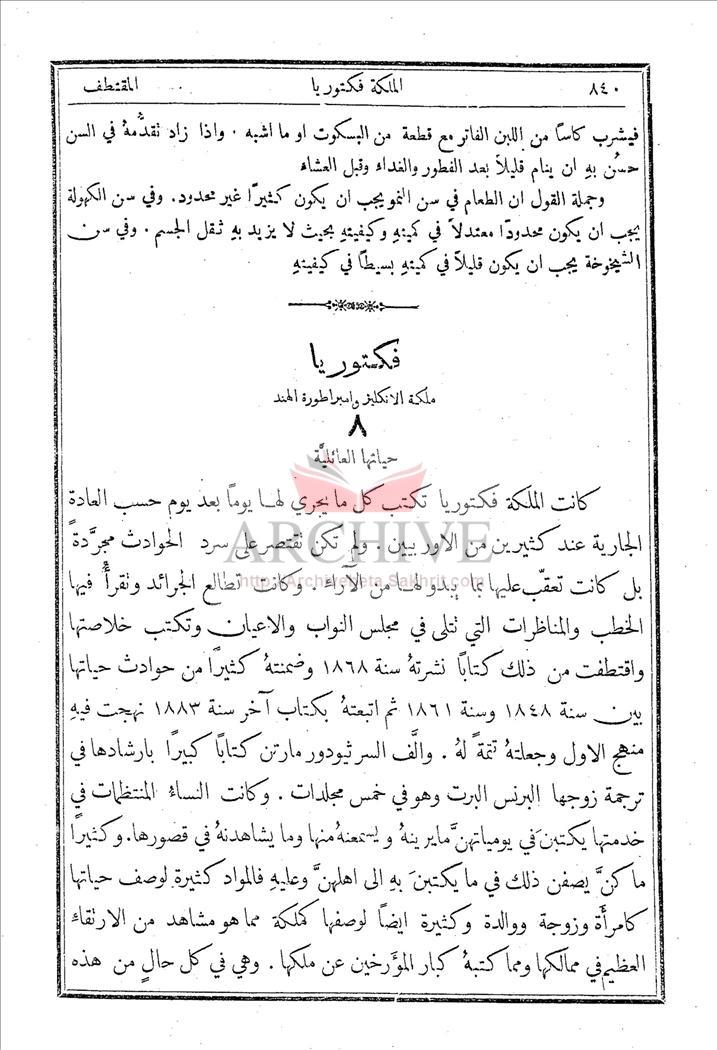 ٨٤٠ الملكة فكتوريا المقتطف
فيشرب كاسًا من اللبن الفاتر مع قطعة من البسكوت او ما اشبه . واذا زاد نقدُّمهُ في السن
حسُن بهِ ان ينام قليلاً بعد الفطور والغداء وقبل العشاء
وجملة القول ان الطعام في سن النمو يجب ان يكون كثيرًا غير محدود. وفي سن الكهولة
يجب ان يكون محدودًا معتدلاً في كميتهِ وكيفيتهِ بحيث لا يزيد بهِ ثقل الجسم . وفي سن
الشيخوخة يجب ان يكون قليلاً في كميتهِ بسيطًا في كيفيتهِ
فكتوريا
ملكة الانكليز وامبراطورة الهند
٨
حياتها العائليَّة
كانت الملكة فكتوريا تكتب كل ما يجري لها يومًا بعد يوم حسب العادة
الجارية عند كثيرين من الاوربيين . ولم تكن نقتصر على سرد الحوادث مجرَّدةً
ARCHIVE
بل كانت تعقّب عليها بما يبدو لها من الآراء . وكانت تطالع الجرائد ونقرأُ فيها
http://Archivebeta.Sakhrit.com
الخطب والمناظرات التي نتلى في مجلس النواب والاعيان وتكتب خلاصتها
واقتطفت من ذلك كتابًا نشرتهُ سنة ١٨٦٨ وضمنتهُ كثيرًا من حوادث حياتها
بين سنة ١٨٤٨ وسنة ١٨٦١ ثم اتبعتهُ بكتاب آخر سنة ١٨٨٣ نهجت فيهِ
منهج الاول وجعلتهُ تتمةً لهُ . والَّف السر ثيودور مارتن كتابًا كبيرًا بارشادها في
ترجمة زوجها البرنس البرت وهو في خمس مجلدات . وكانت النساءُ المنتظمات في
خدمتها يكتبنَ في يومياتهنَّ ما يرينهُ ويسمعنهُ منها وما يشاهدنهُ في قصورها. وكثيرًا
ما كنَّ يصفن ذلك في ما يكتبنَ بهِ الى اهلهنَّ وعليهِ فالمواد كثيرة لوصف حياتها
كامرأَة وزوجة ووالدة وكثيرة ايضًا لوصفها كملكة مما هو مشاهد من الارتقاء
العظيم في ممالكها ومما كتبهُ كبار المؤَرخين عن ملكها . وهي في كل حالٍ من هذه